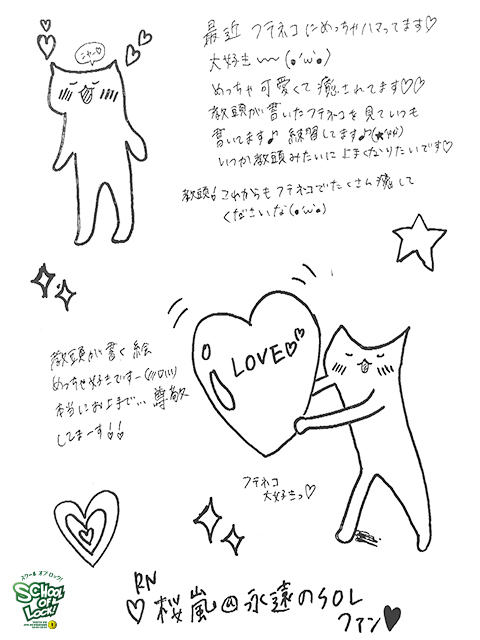 ニャー♡
最近 フテネコにめっちゃハマってます♡
大好き〜〜(๑'ω'๑)
めっちゃ可愛くて癒されてます♡♡
教頭が書いたフテネコを見ていつも
書いてます♪ 練習してます♪
いつか教頭みたいに上手くなりたいです♡
教頭!これからもフテネコでたくさん癒して
くださいな(๑'ω'๑)
LOVE♡
教頭が書く絵
めっちゃ好きですー
本当にお上手で… 尊敬
してまーす!!
フテネコ
大好きっ♡
スクール オブ ロック!
SCHOOL OF LOCK!
RN
♡桜嵐@永遠のSOL
ファン♥